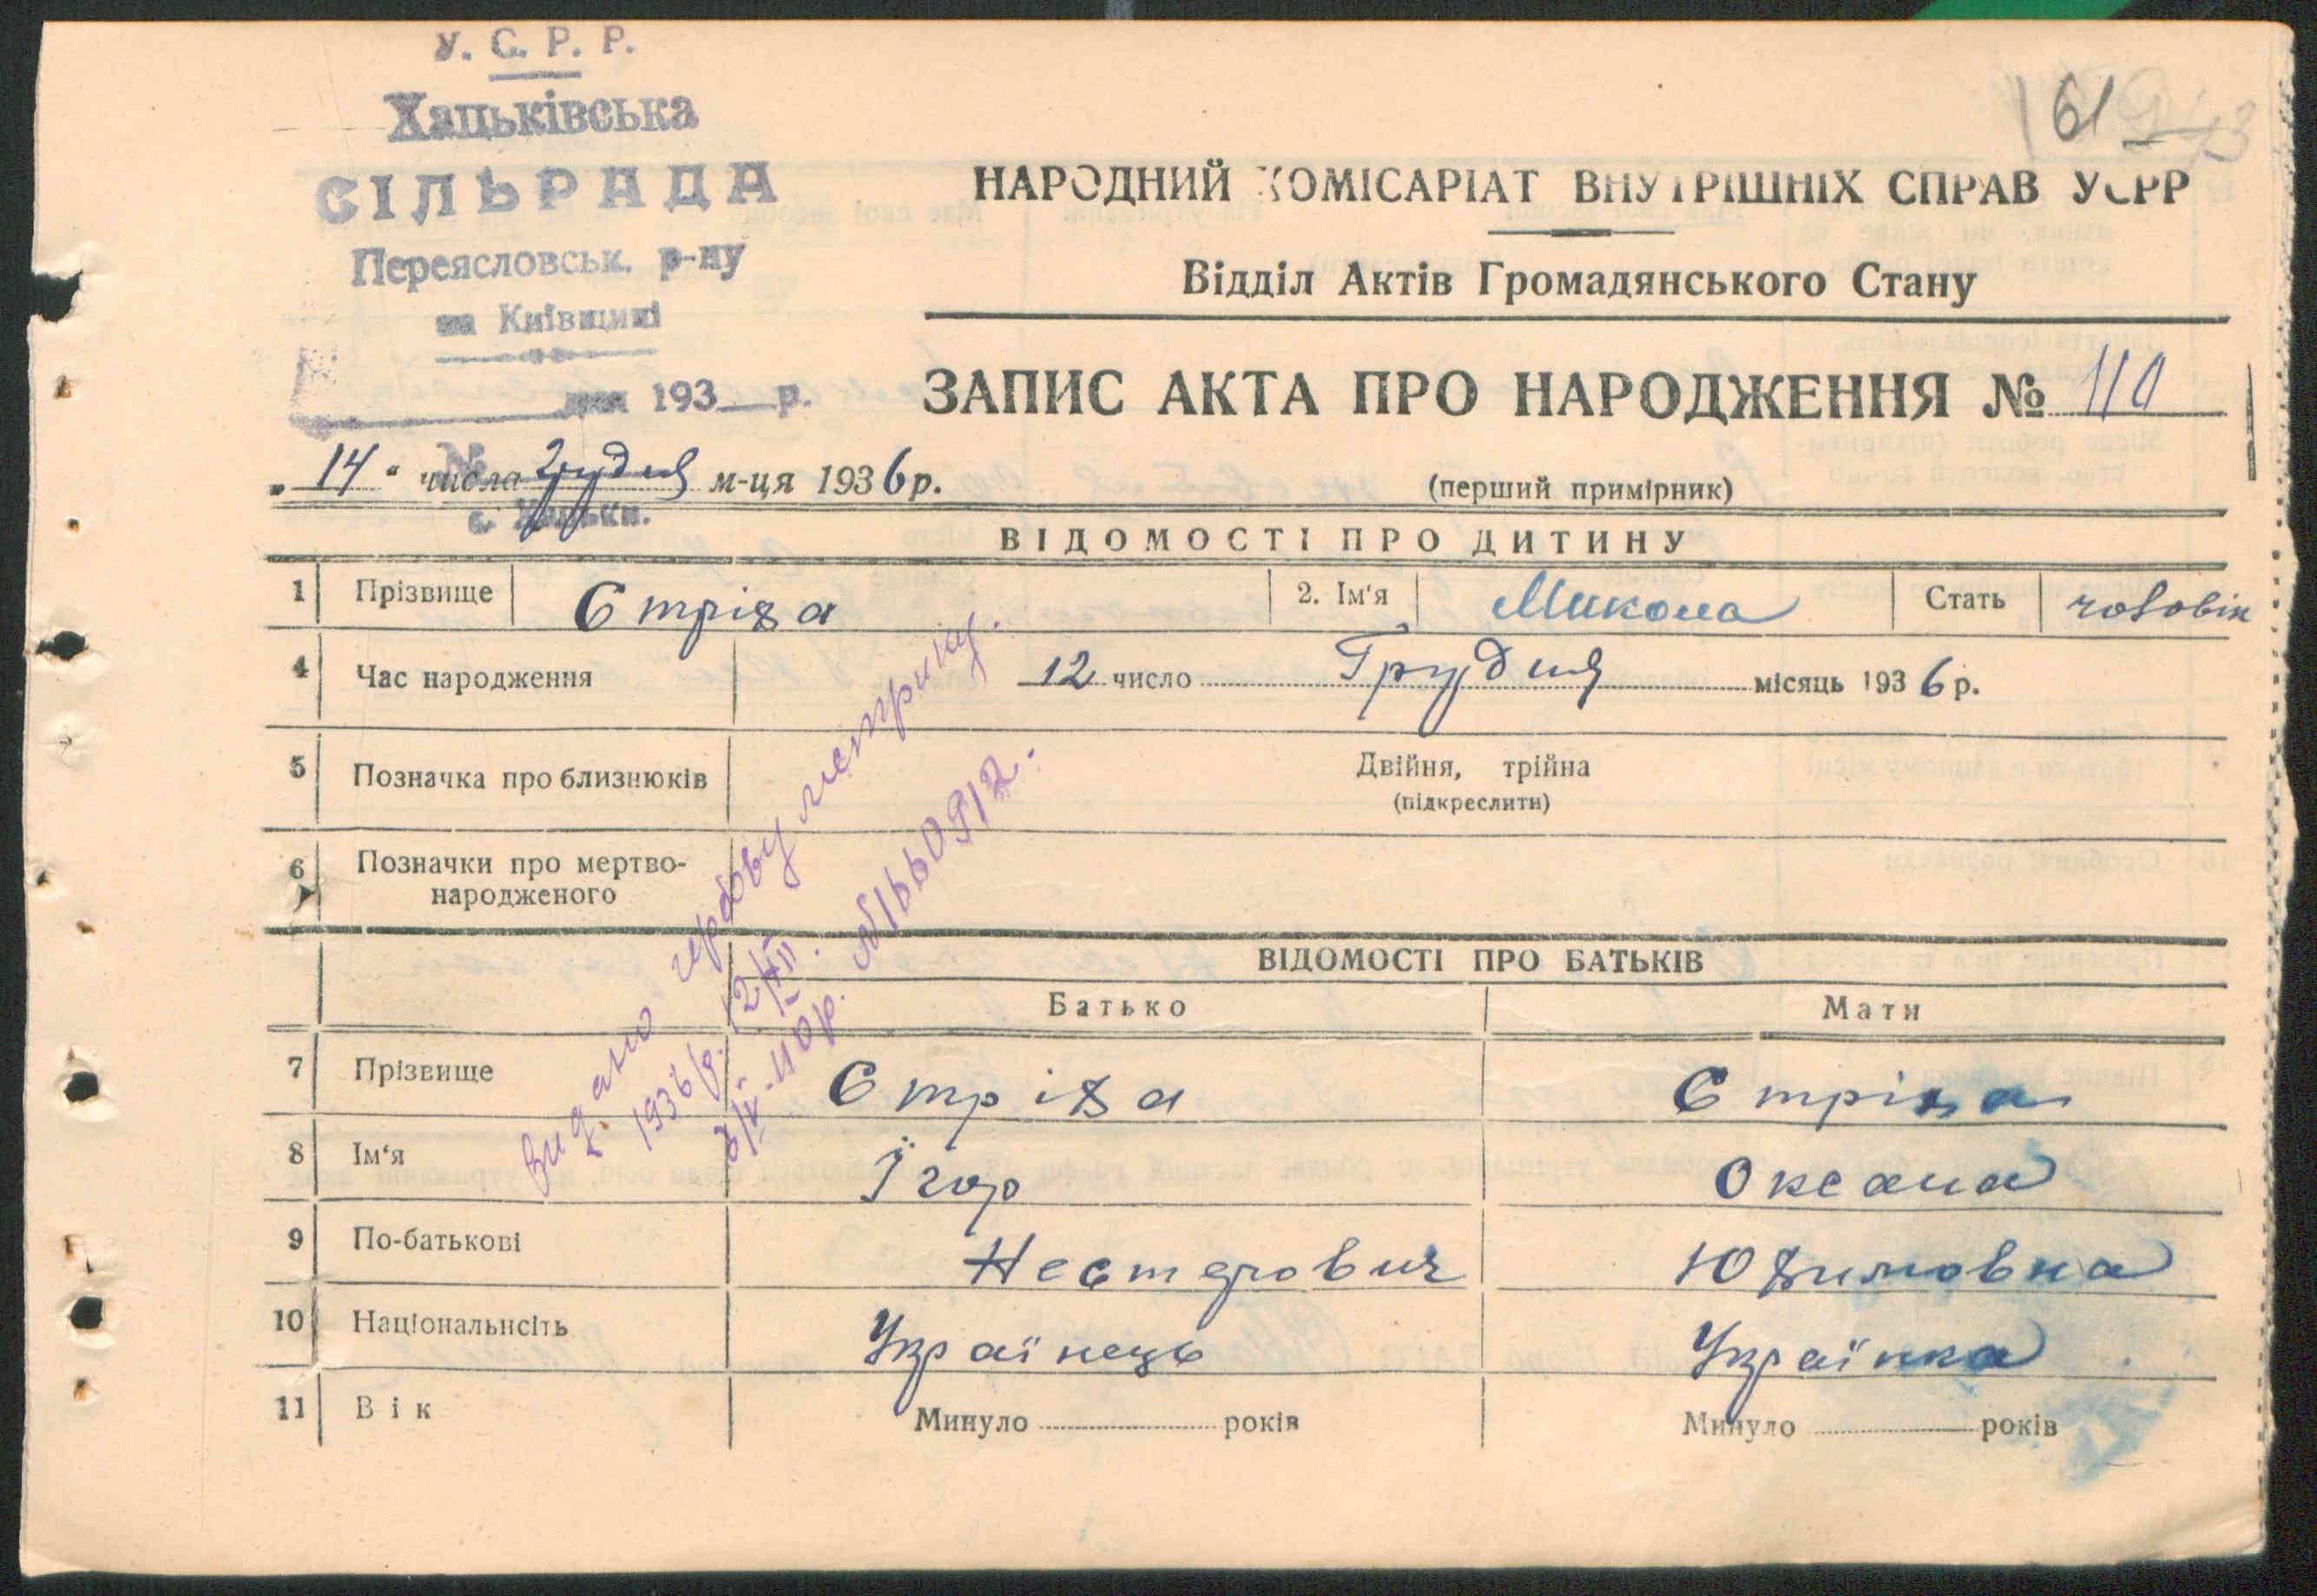 У. С. Р. Р.
Хацьківська
СІЛЬРАДА
Переясловськ. р-ну
на Київщині
дня 193 р.
№
с. Хацьки.
161
НАРОДНИЙ КОМІСАРІАТ ВНУТРІШНІХ СПРАВ УСРР
Відділ Актів Громадянського Стану
ЗАПИС АКТА ПРО НАРОДЖЕННЯ № 110
„14“ числа грудня м-ця 1936 р.
(перший примірник)
ВІДОМОСТІ ПРО ДИТИНУ
1 Прізвище Стріха 2. Ім'я Микола Стать чоловік
4 Час народження 12 число Грудня місяць 1936 р.
5 Позначка про близнюків Двійня, трійна
(підкреслити)
6 Позначки про мертво-
народженого
ВІДОМОСТІ ПРО БАТЬКІВ
Батько Мати
7 Прізвище Стріха Стріха
8 Ім'я Їгор Оксана
9 По-батькові Нестерович Юхимовна
10 Національнсіть Українець Українка
11 Вік Минуло років Минуло років
Видано гербову метрику.
1936 р. 12/XII.
№1660912.